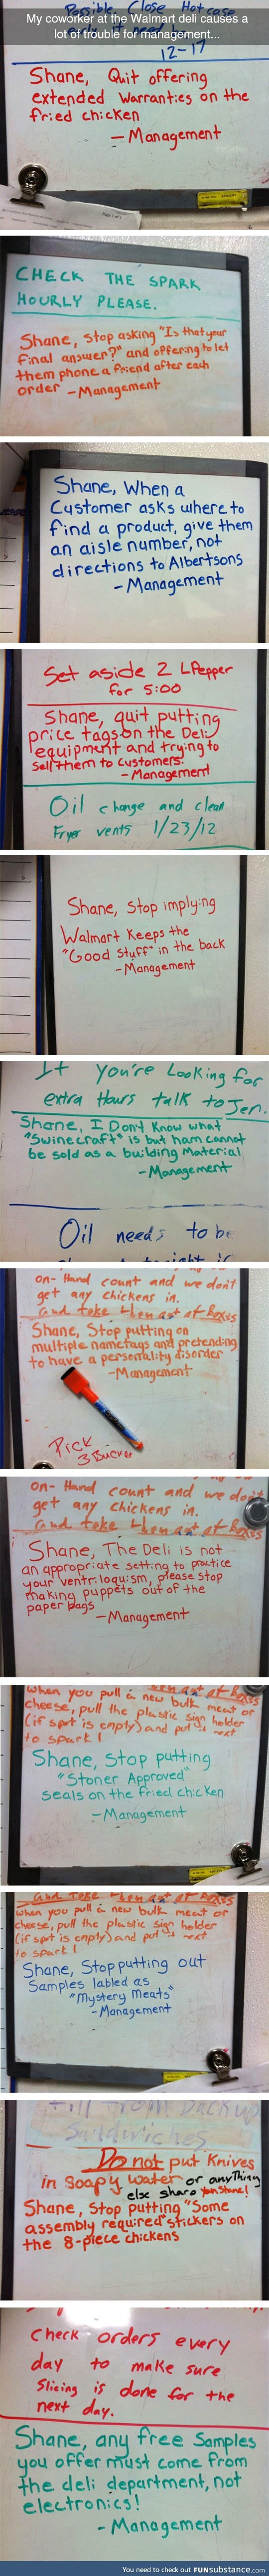 Possible. Close Hot case
My coworker at the Walmart deli causes a
lot of trouble for management...
12-17
Shane, Quit offering
extended Warranties on the
fried chicken
- Management
CHECK THE SPARK
HOURLY PLEASE.
Shane, Stop asking "Is that your
final answer?" and offering to let
them phone a friend after each
order - Management
Shane, When a
Customer asks where to
find a product, give them
an aisle number, not
directions to Albertsons
- Management
Set aside 2 LPepper
for 5:00
Shane, quit putting
price tags on the Deli
equipment and trying to
sell them to customers.
- Management
Oil change and clean
Fryer vents 1/23/12
Shane, Stop implying
Walmart Keeps the
"Good Stuff" in the back
- Management
If you're Looking for
extra Hours talk to Jen.
Shane, I Don't Know what
"Swinecraft" is but ham cannot
be sold as a building Material
- Management
Oil needs to be
on-Hand count and we don't
get any chickens in.
and take them
Shane, Stop putting on
multiple nametags and pretending
to have a personality disorder
- Management
Pick
3 Buckee
on-Hand count and we don't
get any chickens in.
and take them
Shane, The Deli is not
an appropriate setting to practice
your ventriloquism, please stop
making puppets out of the
paper bags
- Management
When you pull a new bulk meat or
cheese, pull the plastic sign holder
(if spot is empty) and put it next
to spark!
Shane, Stop putting
"Stoner Approved"
seals on the fried chicken
- Management
and take them
when you pull a new bulk meat or
cheese, pull the plastic sign holder
(if spot is empty) and put it next
to spark!
Shane, Stop putting out
Samples labled as
"Mystery Meats"
- Management
fill from backup
Sandwiches
Do not put Knives
in soapy water or anything
else sharp
Shane, Stop putting "Some
assembly required" stickers on
the 8-piece chickens
Check orders every
day to make sure
Slicing is done for the
next day.
Shane, any free Samples
you offer must come from
the deli department, not
electronics!
- Management
You need to check out FUNsubstance.com